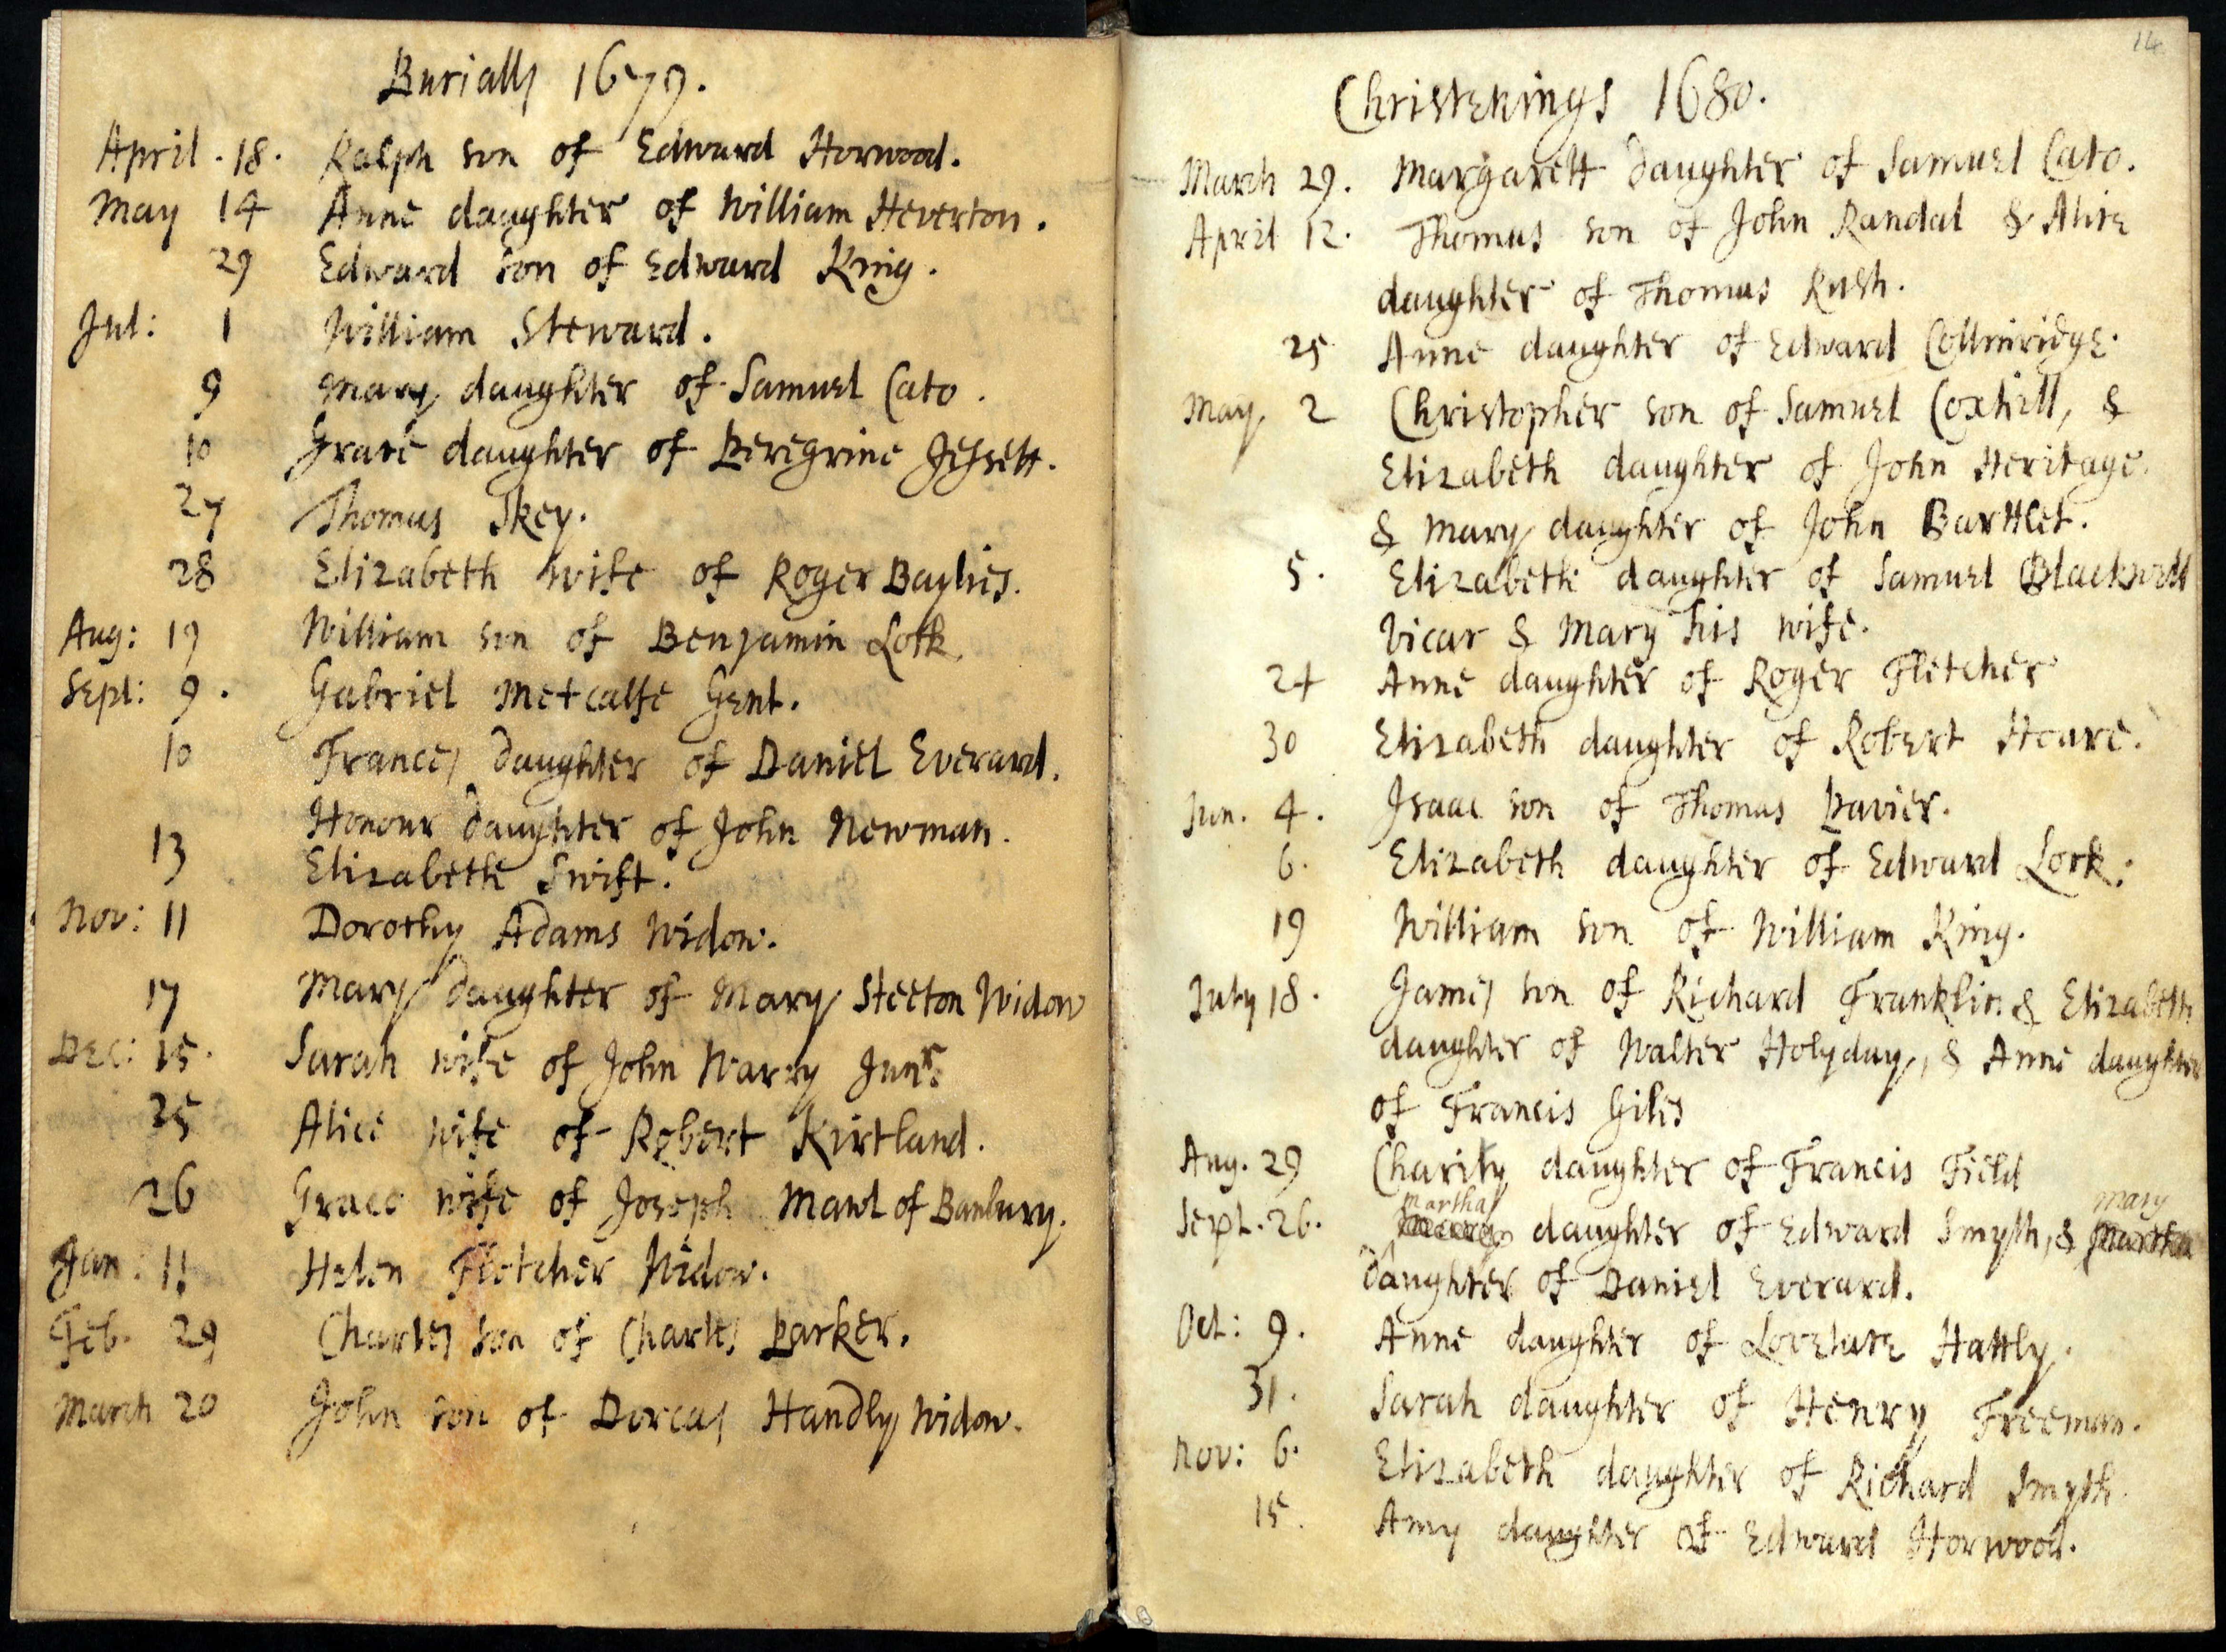 Burialls 1679.
April . 18. Ralph son of Edward Horwood.
May 14 Anne daughter of William Heverton.
29 Edward son of Edward King.
Jul: 1 William Steward.
9 Mary daughter of Samuel Cato.
10 Grace daughter of Peregrine Jessett.
27 Thomas Skey.
28 Elizabeth wife of Roger Baylies.
Aug: 19 William son of Benjamin Lock.
Sept: 9. Gabriel Metcalfe Gent.
10 Frances daughter of Daniel Everard.
Honour daughter of John Newman.
13 Elizabeth Swift.
Nov: 11 Dorothy Adams Widow.
17 Mary daughter of Mary Steeton Widow
Dec: 15. Sarah wife of John Warry Junr.
25 Alice wife of Robert Kirtland.
26 Grace wife of Joseph Mawl of Banbury.
Jan: 11 Helen Fletcher Widow.
Feb. 29 Charles son of Charles Parker.
March 20 John son of Dorcas Handly Widow.
14
Christenings 1680.
March 29. Margarett daughter of Samuel Cato.
April 12. Thomas son of John Randal & Alice
daughter of Thomas Rush.
25 Anne daughter of Edward Collinridge.
May 2 Christopher son of Samuel Coxhill, &
Elizabeth daughter of John Heritage.
& Mary daughter of John Bartlet.
5. Elizabeth daughter of Samuel Blackwell
Vicar & Mary his wife.
24 Anne daughter of Roger Fletcher
30 Elizabeth daughter of Robert Hoare.
Jun. 4. Isaac son of Thomas Pavier.
6. Elizabeth daughter of Edward Lock.
19 William son of William King.
July 18. James son of Richard Franklin & Elizabeth
daughter of Walter Holyday, & Anne daughter
of Francis Giles
Aug. 29 Charity daughter of Francis Field
Sept. 26. Martha daughter of Edward Smyth, & Mary
daughter of Daniel Everard.
Oct: 9. Anne daughter of Lovelace Hattly.
31. Sarah daughter of Henry Freeman.
Nov: 6. Elizabeth daughter of Richard Smyth.
15. Amy daughter of Edward Horwood.